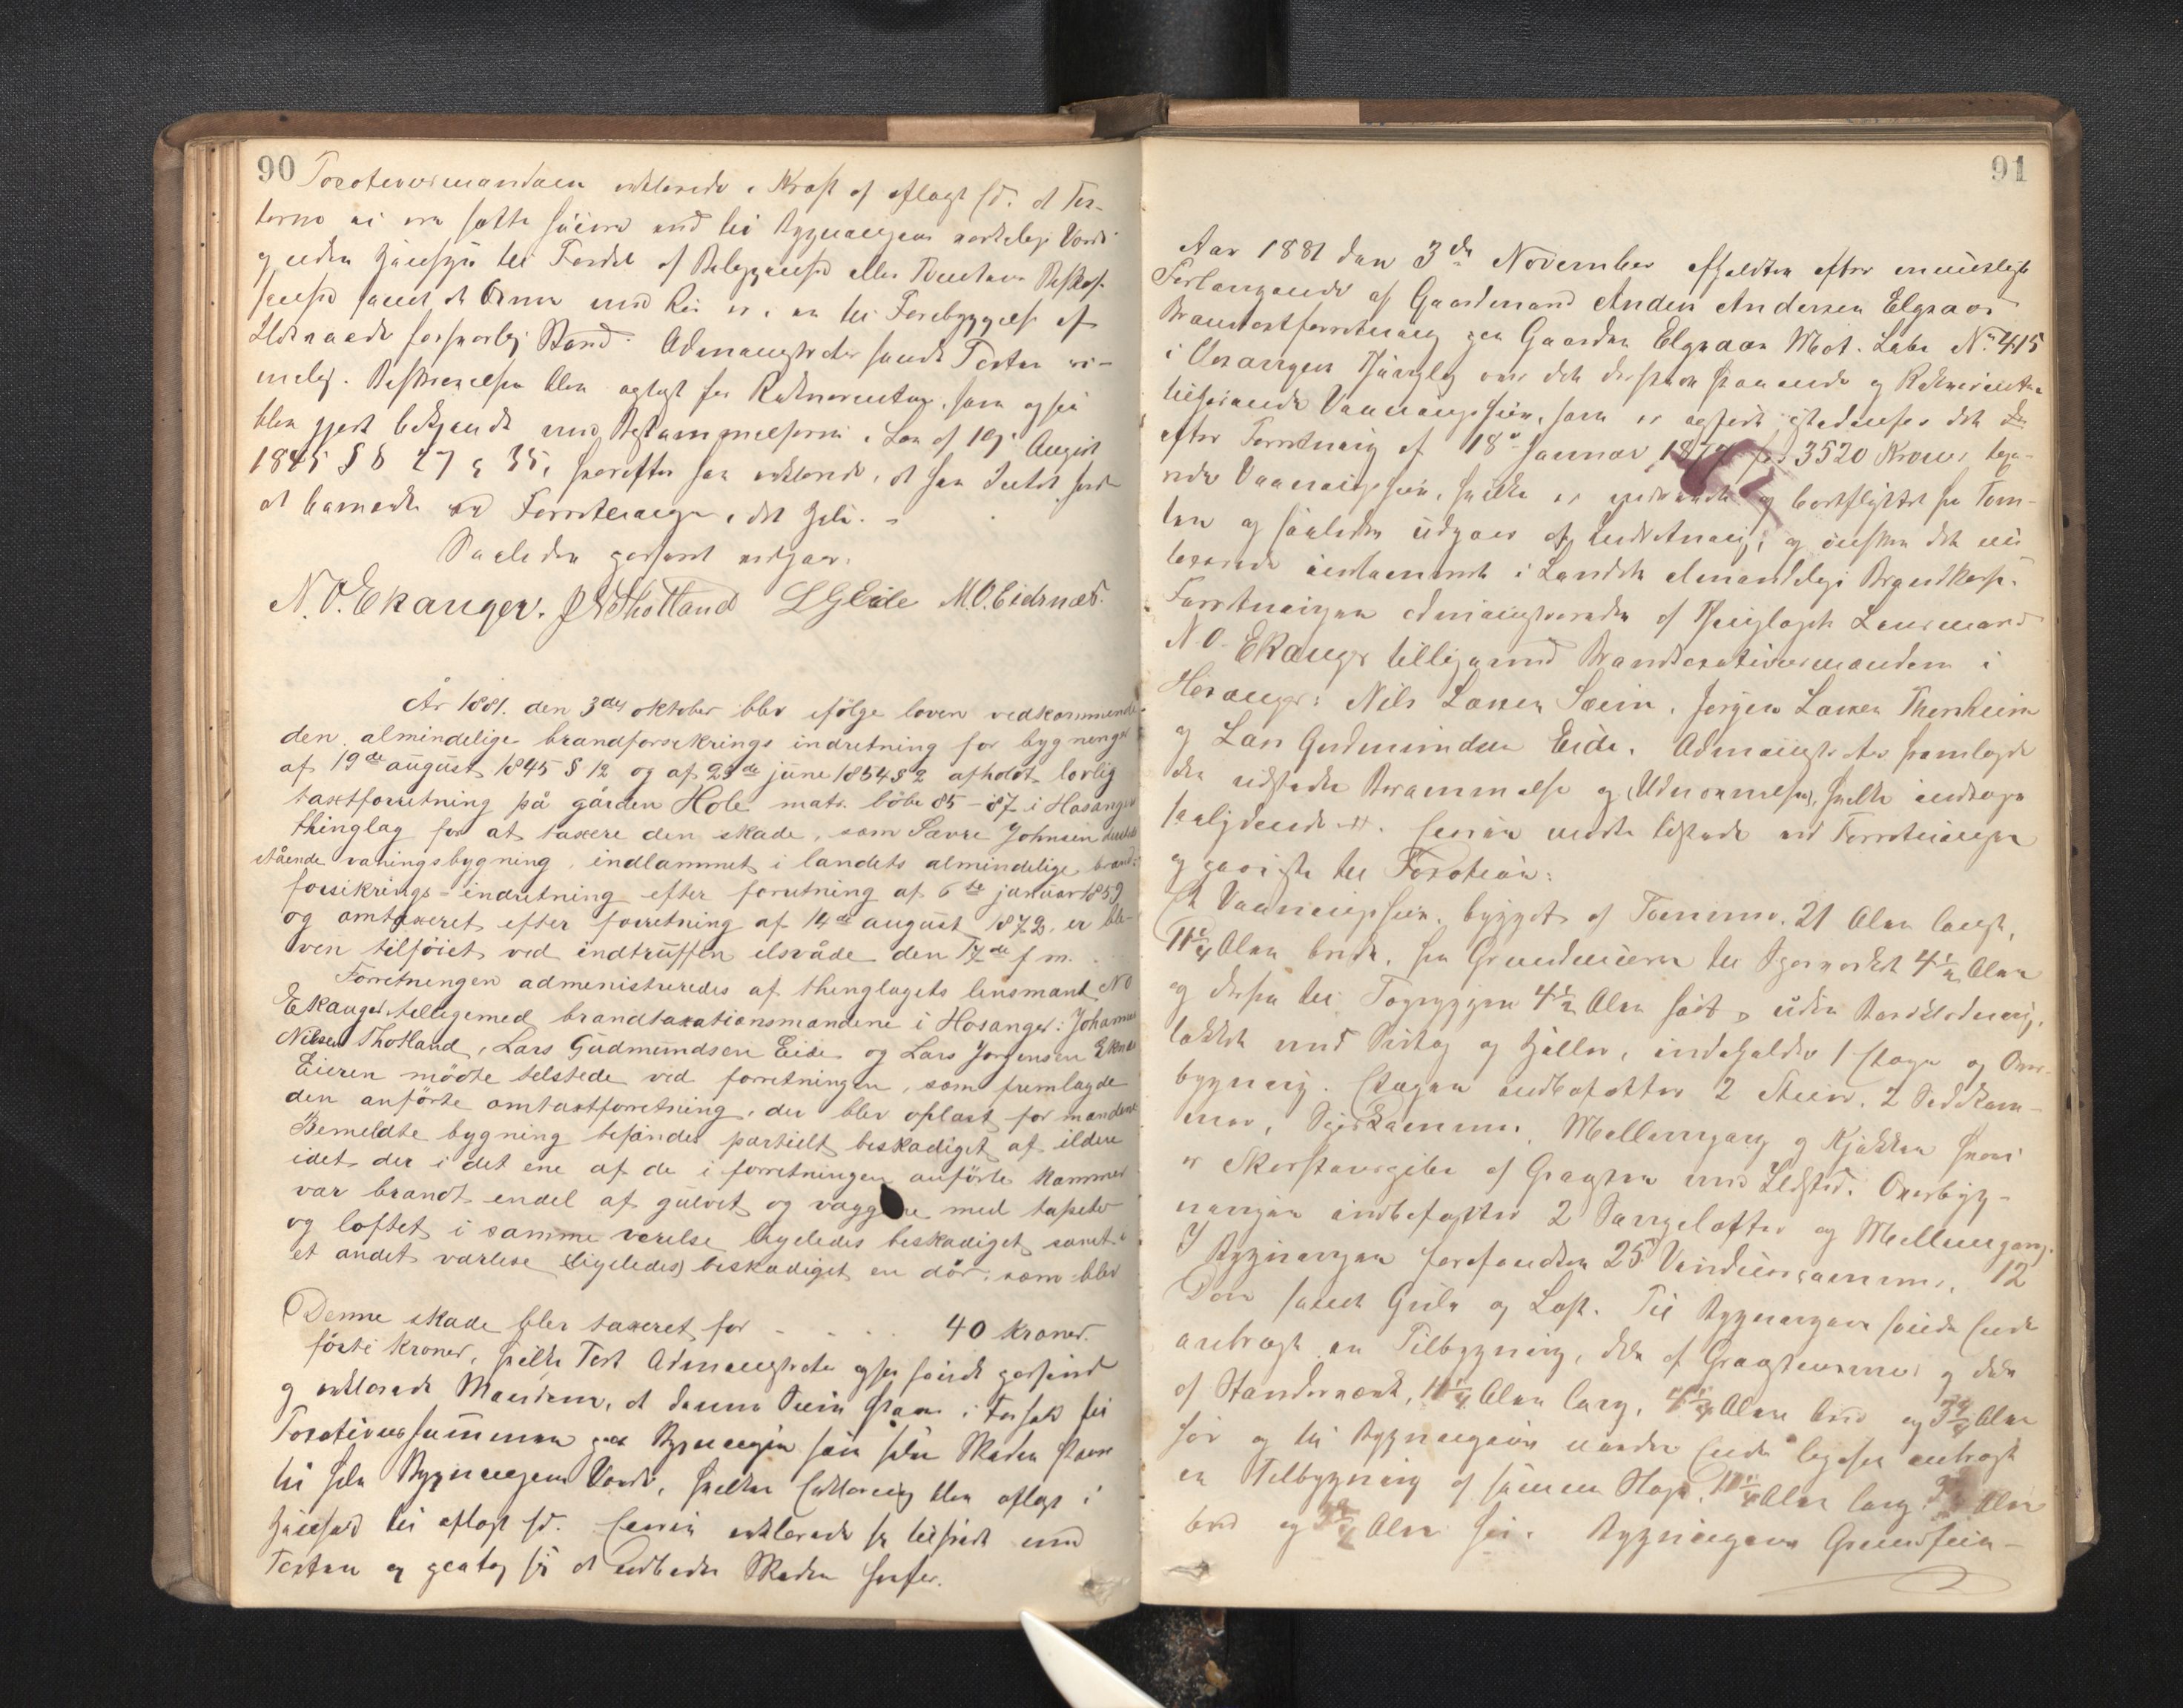 90 Taxationsmændene erklærede i Kraft af aflagt Ed, at Tax-
terne ei ere satte høiere end til Bygningens virkelige Værdi
og uden Hensyn til Fordel af Beliggenhed eller Tomtens Beskaf-
fenhed samt at Ovne med Rør er, en til Forebyggelse af
Ildsvaade forsvarlig Stand. Administrator fandt Taxten ri-
melig. Beskrivelsen blev oplæst for Rekvirenten, som ogsaa
blev gjort bekjendt med Bestemmelserne i Lov af 19de August
1845 §§ 27 & 35, hvorefter han erklærede, at han Intet havde
at bemærke ved Forretningen, i det Hele. –
Saaledes passeret vidner
N. O. Ekanger. J N Thotland L G Eide M. O. Eidsnæs.
År 1881. den 3die oktober blev ifølge loven vedkommende
den almindelige brandforsikrings indretning for bygninger
af 19de august 1845 § 12 og af 23de june 1854 § 2 afholdt lovlig
taxtforretning på gården Hole matr. løbe 85–87 i Hosanger
thinglag for at taxere den skade, som Sævre Johnsen
stående vaningsbygning, indlammet i landets almindelige brand-
forsikrings-indretning efter foretning af 6te januar 1859
og omtaxeret efter forretning af 14de august 1872, er ble-
ven tilføiet ved indtruffen ilsvåde den 17de f. m.
Foretningen administreredes af thinglagets lensmand N O
Ekanger tilligemed brandtaxationsmændene i Hosanger: Johannes
Nilsen Thotland, Lars Gudmundsen Eide og Lars Jørgensen
Eieren mødte tilstede ved forretningen, som fremlagde
den anførte omtaxtforretning, der blev oplæst for mændene
Bemeldte bygning befandes partielt beskadiget af ilden
idet der i det ene af de i forretningen anførte kammer
var brandt endel af gulvet og væggene med tapeter
og loftet i samme værelse ligeledes beskadiget samt i
et andet værlese (ligeledes) beskadiget en dør, som blev
Denne skade blev taxeret for - - - - 40 kroner.
førti kroner, hvilken Taxt Administrator ogsaa fandt passende
og erklærede Mændene, at denne Sum staar i Forhold til
Taxationssummen paa Bygningen som selve Skaden staar
til hele Bygningens Værdi, hvilken Erklæring blev aflagt i
Henhold til aflagt Ed. Eieren erklærede sig tilfreds med
Taxten og paatog sig at udbedre Skaden herfor.
91
Aar 1881 den 3de November afholdtes efter mundtlig
Forlangende af Gaardmand Anders Andersen Elgraas
Brandtaxtforretning paa Gaarden Elgraas Mat. Løbe No 415
i Hosangers Thinglag over det derpaa staaende og Rekvirenten
tilhørende Vaaningshuus, som er opført istedenfor det
efter Forretning af 18de Januar 187 for 3520 Kroner taxe-
rede Vaaningshuus, hvilket er nedrevet og bortflyttet fra Tom-
ten og saaledes udgaaet af Indretning, og ønskes det nu
taxerede indlemmet i Landets almindelige Brandkasse.
Forretningen administreredes af Thinglagets Lensmand
N O. Ekanger tilligemed Brandtaxationsmændene i
Hosanger: Nils Larsen Sæim, Jørgen Larsen Thorsheim
og Lars Gudmundsen Eide. Administrator fremlagde
den udstedte Berammelse og (Udnævnelse), hvilke indtages
saalydende H. Eieren mødte tilstede ved Forretningen
og paaviste til Taxation:
Et Vaaningshuus, bygget af Tømmer, 21 Alen langt,
11 1/4 Alen bredt, fra Grundmuren til Sperrerket 4 1/2 Alen
og derfra til Tagryggen 4 1/2 Alen høit, uden Bordklædning,
tækket med Sutag og Heller, indeholder 1 Etage og Over-
bygning. Etagen indbefatter 2 Stuer, 2 Sidekam-
mer, Spiskammer, Mellemgang og Kjøkken hvori
er Skorstenspibe af Graasten med Ildsted. Overbyg-
ningen indbefatter 2 Sengelofter og Mellemgang.
I Bygningen forefandtes 25 Vinduesrammer, 12
Døre samt Gulv og Loft. Til Bygningens søndre Ende
anbragt en Tilbygning, dels af Graastensmur og dels
af Standerværk, 11 1/4 Alen lang, Alen bred og Alen
høi og til Bygningens nordre Ende ligesaa anbragt
en Tilbygning af samme Slags, 11 1/4 Alen lang, Alen
bred og Alen høi. Bygningens Grundmur-